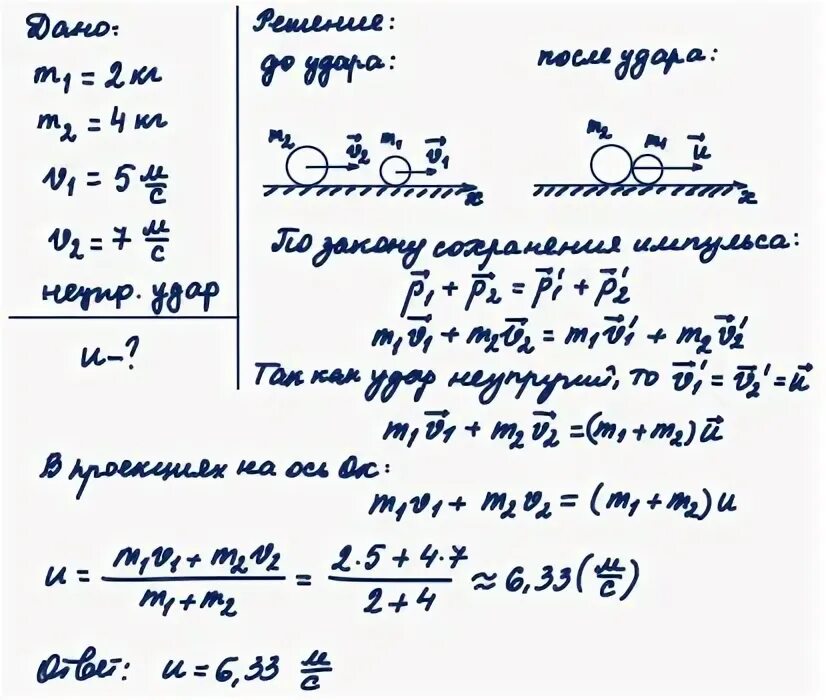 Дано:
m₁ = 2 кг
m₂ = 4 кг
v₁ = 5 м/с
v₂ = 7 м/с
неупр. удар
u – ?
Решение:
до удара: после удара:
m₂ v⃗₂ m₁ v⃗₁ x
m₂ m₁ u⃗ x
По закону сохранения импульса:
p⃗₁ + p⃗₂ = p⃗₁' + p⃗₂'
m₁v⃗₁ + m₂v⃗₂ = m₁v⃗₁' + m₂v⃗₂'
Так как удар неупругий, то v⃗₁' = v⃗₂' = u⃗
m₁v⃗₁ + m₂v⃗₂ = (m₁ + m₂)u⃗
В проекциях на ось Ox:
m₁v₁ + m₂v₂ = (m₁ + m₂)u
u = (m₁v₁ + m₂v₂)/(m₁ + m₂) = (2·5 + 4·7)/(2 + 4) ≈ 6,33 (м/с)
Ответ: u = 6,33 м/с